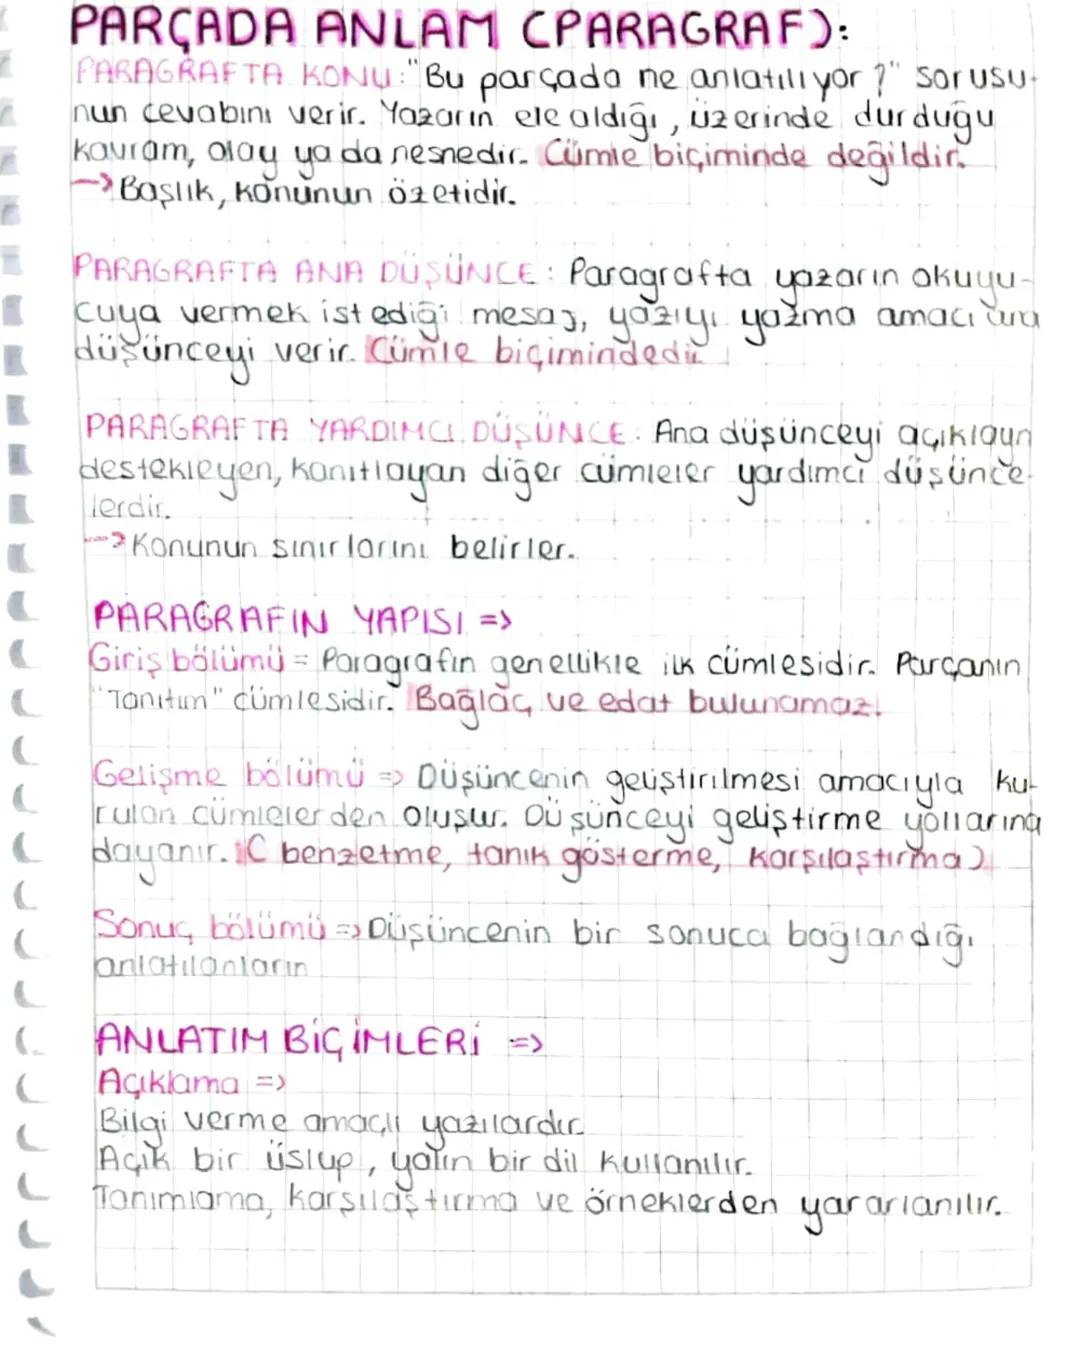 PARÇADA ANLAM (PARAGRAF):
PARAGRAFTA KONU: "Bu parçada ne anlatılıyor?" sorusu-
nun cevabını verir. Yazarın ele aldığı, üzerinde durduğu
kavram, olay ya da nesnedir. Cümle biçiminde değildir.
→ Başlık, konunun özetidir.
PARAGRAFTA ANA DÜŞÜNCE: Paragrafta yazarın okuyu-
cuya vermek istediği mesaj, yazıyı yazma amacı ana
düşünceyi verir. Cümle biçimindedir
PARAGRAFTA YARDIMCI DÜŞÜNCE: Ana düşünceyi açıklayn
destekleyen, kanıtlayan diğer cümleler yardımcı düşünce-
lerdir.
→ Konunun sınırlarını belirler.
PARAGRAFIN YAPISI =>
Giriş bölümü = Paragrafın genellikle ilk cümlesidir. Parçanın
"Tanıtım" cümlesidir. Bağlaç ve edat bulunamaz.
Gelişme bölümü => Düşüncenin geliştirilmesi amacıyla ku-
rulan cümlelerden oluşur. Düşünceyi geliştirme yollarına
dayanır. ( benzetme, tanık gösterme, karşılaştırma)
Sonuç bölümü => Düşüncenin bir sonuca bağlandığı
anlatılanların
ANLATIM BİÇİMLERİ =>
Açıklama =>
Bilgi verme amaçlı yazılardır.
Açık bir üslup, yalın bir dil kullanılır.
Tanımlama, karşılaştırma ve örneklerden yararlanılır.